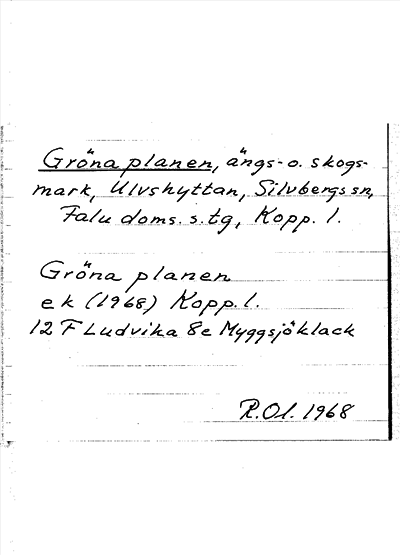 Gröna planen, ängs- o. skogs-
mark, Ulvshyttan, Silvbergs sn,
Falu doms. s. tg, Kopp. l.
Gröna planen
e k (1968) Kopp. l.
12 F Ludvika 8e Myggsjöklack
R. Ol. 1968